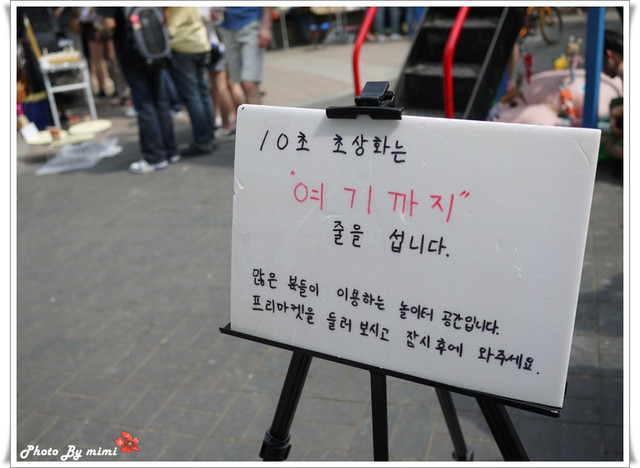 10초 초상화는
"여기까지"
줄을 섭니다.
많은 분들이 이용하는 놀이터 공간입니다.
프리마켓을 둘러보시고 잠시후에 와주세요.
Photo By mimi